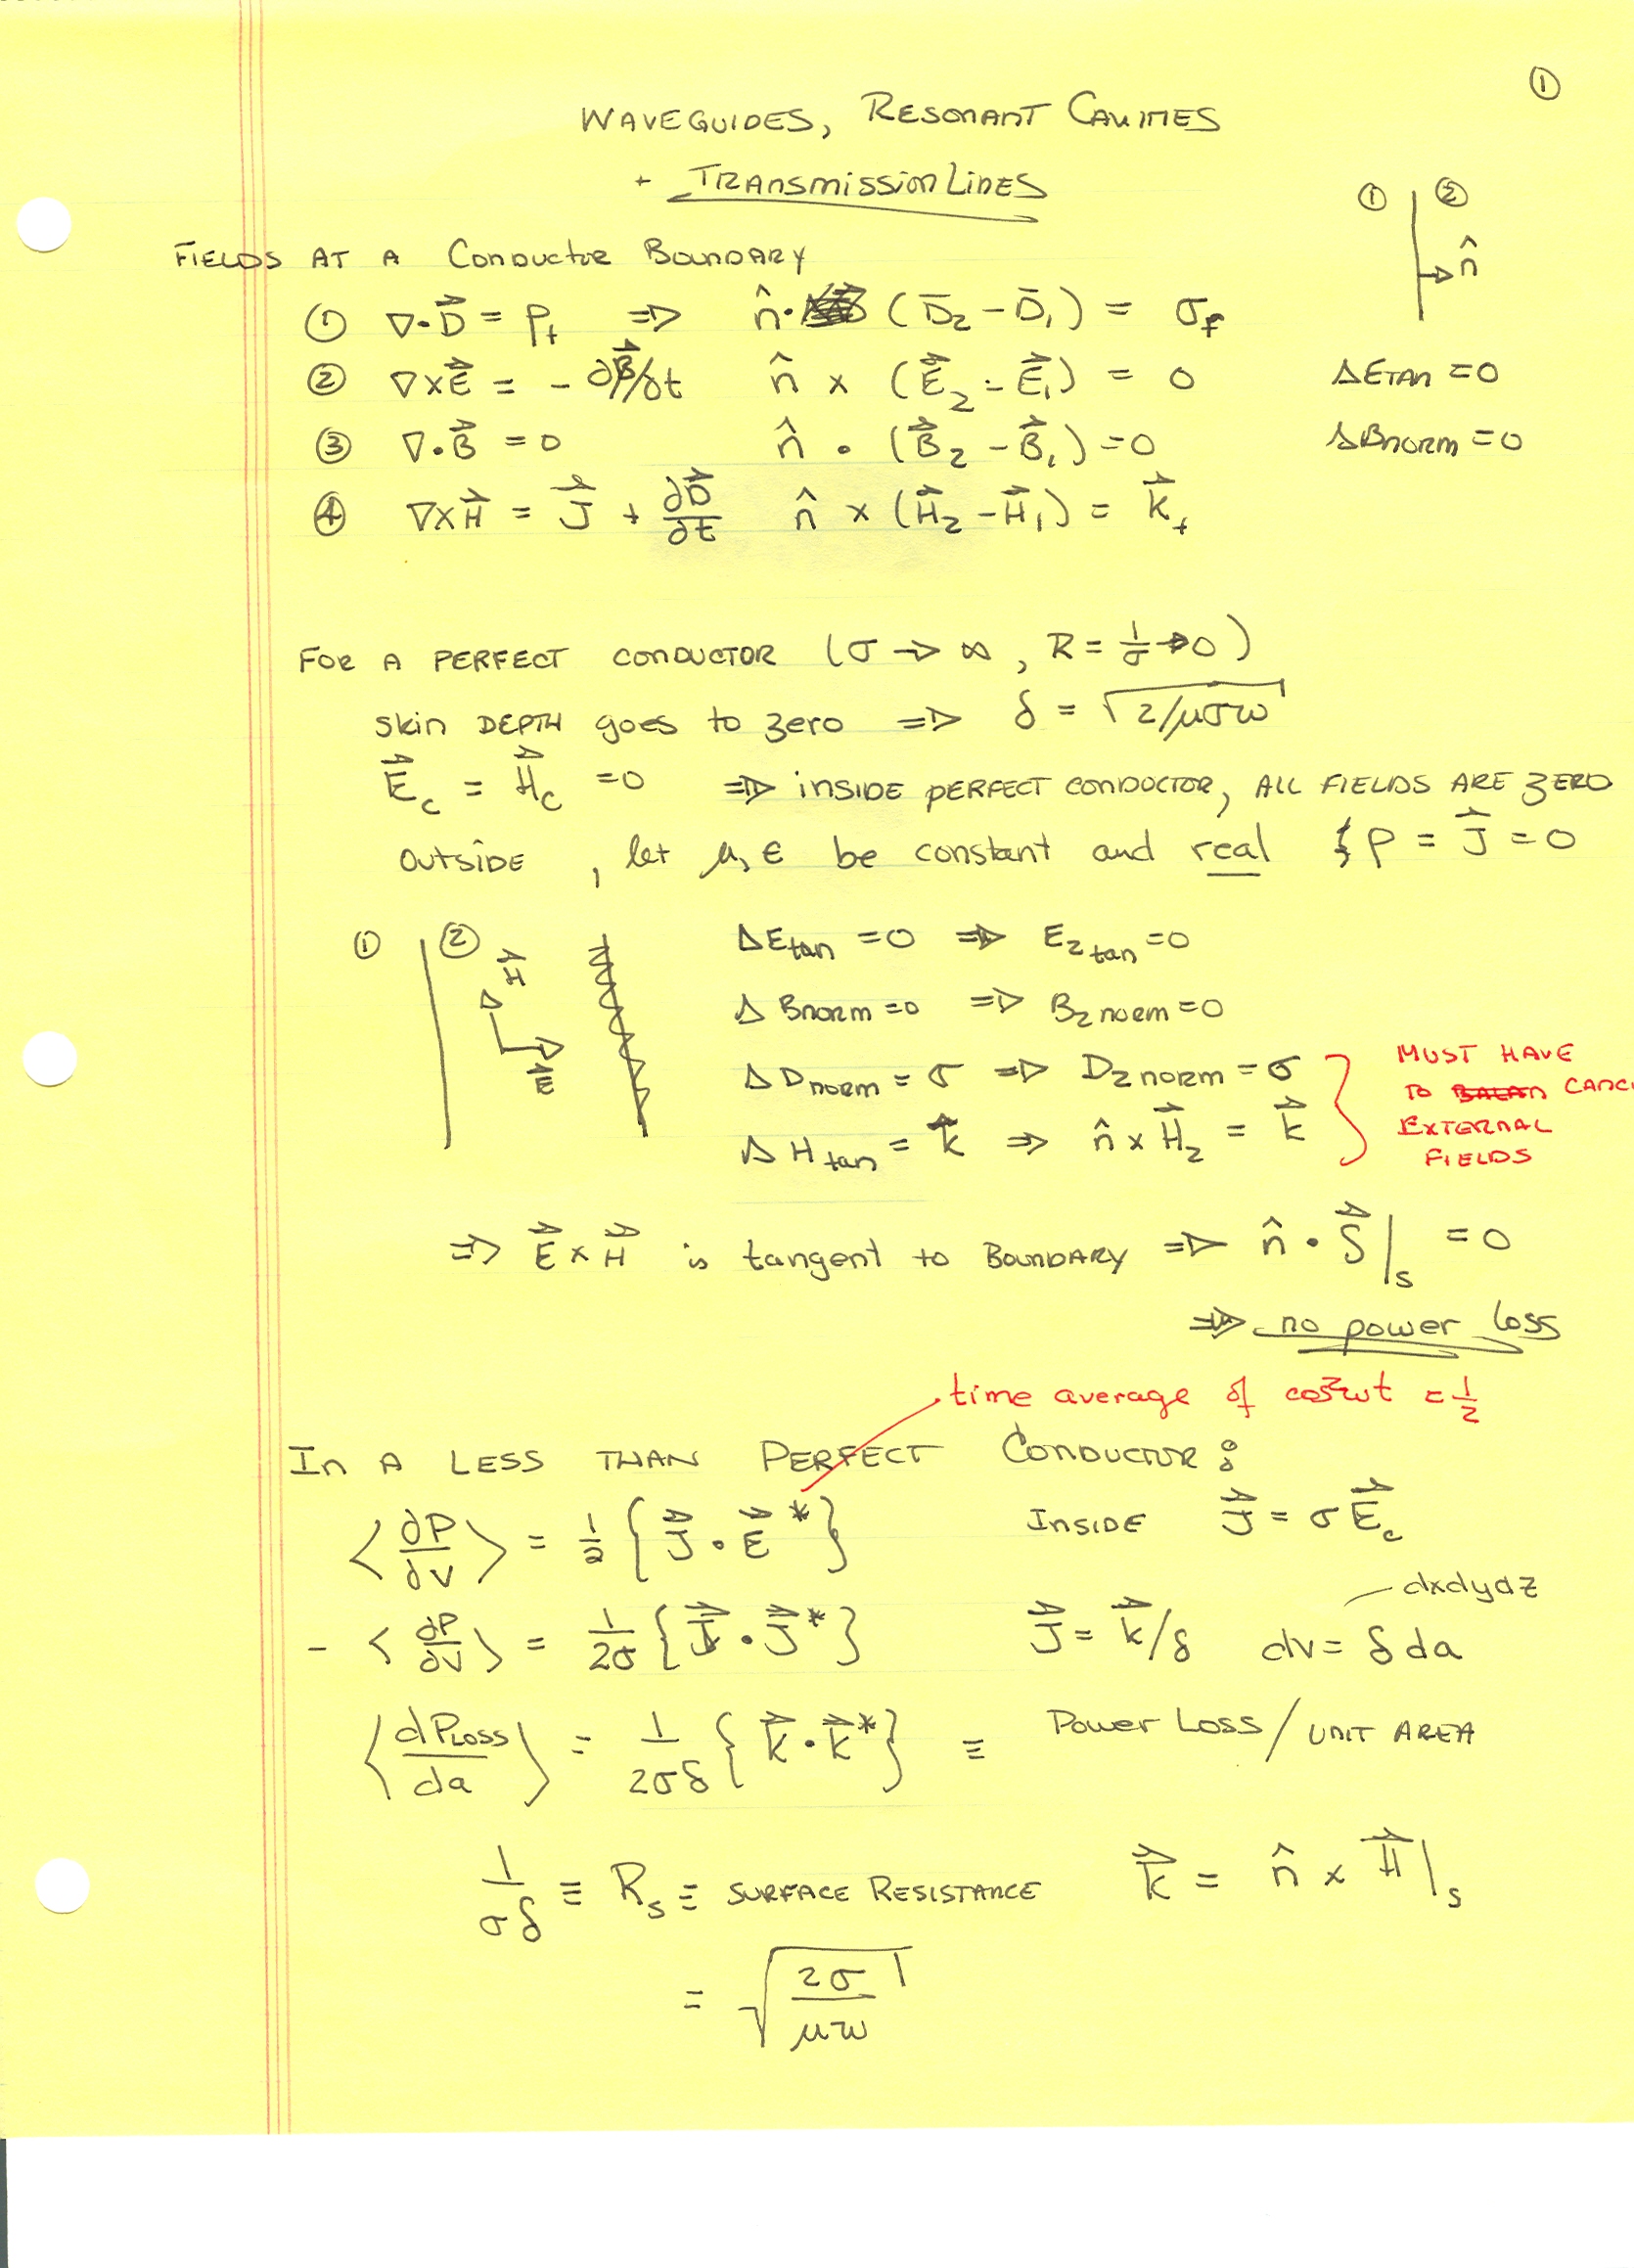 ①
WAVEGUIDES, RESONANT CAVITIES
+ TRANSMISSION LINES
① ②
n̂
FIELDS AT A CONDUCTOR BOUNDARY
① ∇·D⃗ = ρ_f ⇒ n̂· (D̄₂ - D̄₁) = σ_f
② ∇×E⃗ = - ∂B⃗/∂t n̂ × (E⃗₂ - E⃗₁) = 0 ΔE_TAN = 0
③ ∇·B⃗ = 0 n̂ · (B⃗₂ - B⃗₁) = 0 ΔB_NORM = 0
④ ∇×H⃗ = J⃗ + ∂D⃗/∂t n̂ × (H⃗₂ - H⃗₁) = K⃗_f
FOR A PERFECT CONDUCTOR (σ → ∞, R = 1/σ → 0)
SKIN DEPTH goes to zero ⇒ δ = √(2/μσω)
E⃗_c = H⃗_c = 0 ⇒ INSIDE PERFECT CONDUCTOR, ALL FIELDS ARE ZERO
OUTSIDE, let μ, ε be constant and real & ρ = J⃗ = 0
① ② H⃗ E⃗
ΔE_tan = 0 ⇒ E₂tan = 0
ΔB_NORM = 0 ⇒ B₂NORM = 0
ΔD_NORM = σ ⇒ D₂NORM = σ
ΔH_tan = K⃗ ⇒ n̂ × H⃗₂ = K⃗
MUST HAVE
TO CANC
EXTERNAL
FIELDS
⇒ E⃗ × H⃗ is tangent to BOUNDARY ⇒ n̂ · S⃗|_s = 0
⇒ no power loss
time average of cos²ωt = 1/2
IN A LESS THAN PERFECT CONDUCTOR:
⟨∂P/∂V⟩ = 1/2 {J⃗ · E⃗*} INSIDE J⃗ = σE⃗_c
dxdydz
- ⟨∂P/∂V⟩ = 1/2σ {J⃗ · J⃗*} J⃗ = K⃗/δ dv = δ da
⟨dP_LOSS/da⟩ = 1/2σδ {K⃗ · K⃗*} ≡ POWER LOSS / UNIT AREA
1/σδ ≡ R_s ≡ SURFACE RESISTANCE K⃗ = n̂ × H⃗|_s
= √(2σ/μω)